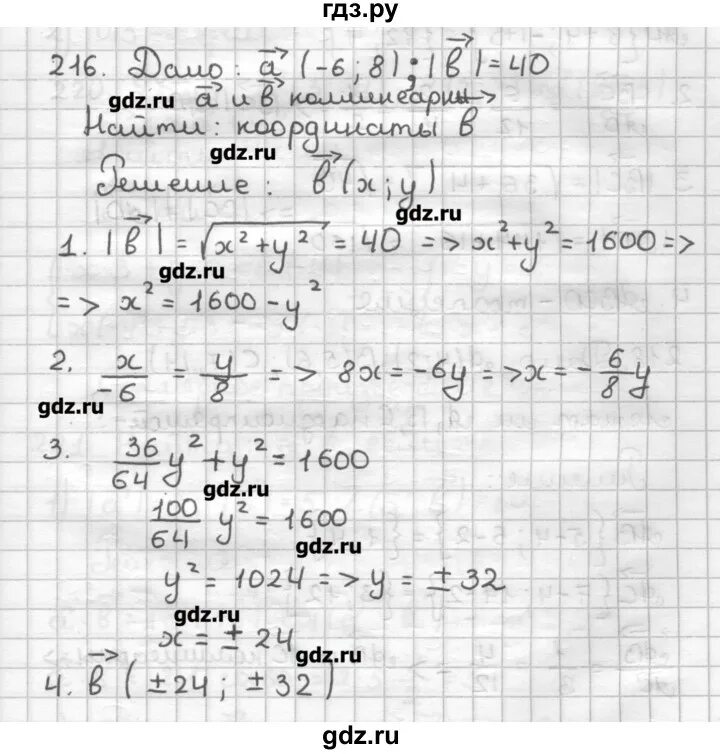 гдз.ру
216. Дано: a⃗ (-6; 8); |b⃗| = 40
gdz.ru a⃗ и b⃗ коллинеарны
Найти: координаты b
gdz.ru
Решение: b⃗ (x; y)
gdz.ru
1. |b⃗| = √x²+y² = 40 => x²+y² = 1600 =>
gdz.ru
=> x² = 1600 - y²
2. x/-6 = y/8 => 8x = -6y => x = -6/8 y
gdz.ru
3. 36/64 y² + y² = 1600
gdz.ru
100/64 y² = 1600
gdz.ru
y² = 1024 => y = ± 32
gdz.ru
x = ± 24
gdz.ru
4. b⃗ (±24; ±32)
gdz.ru